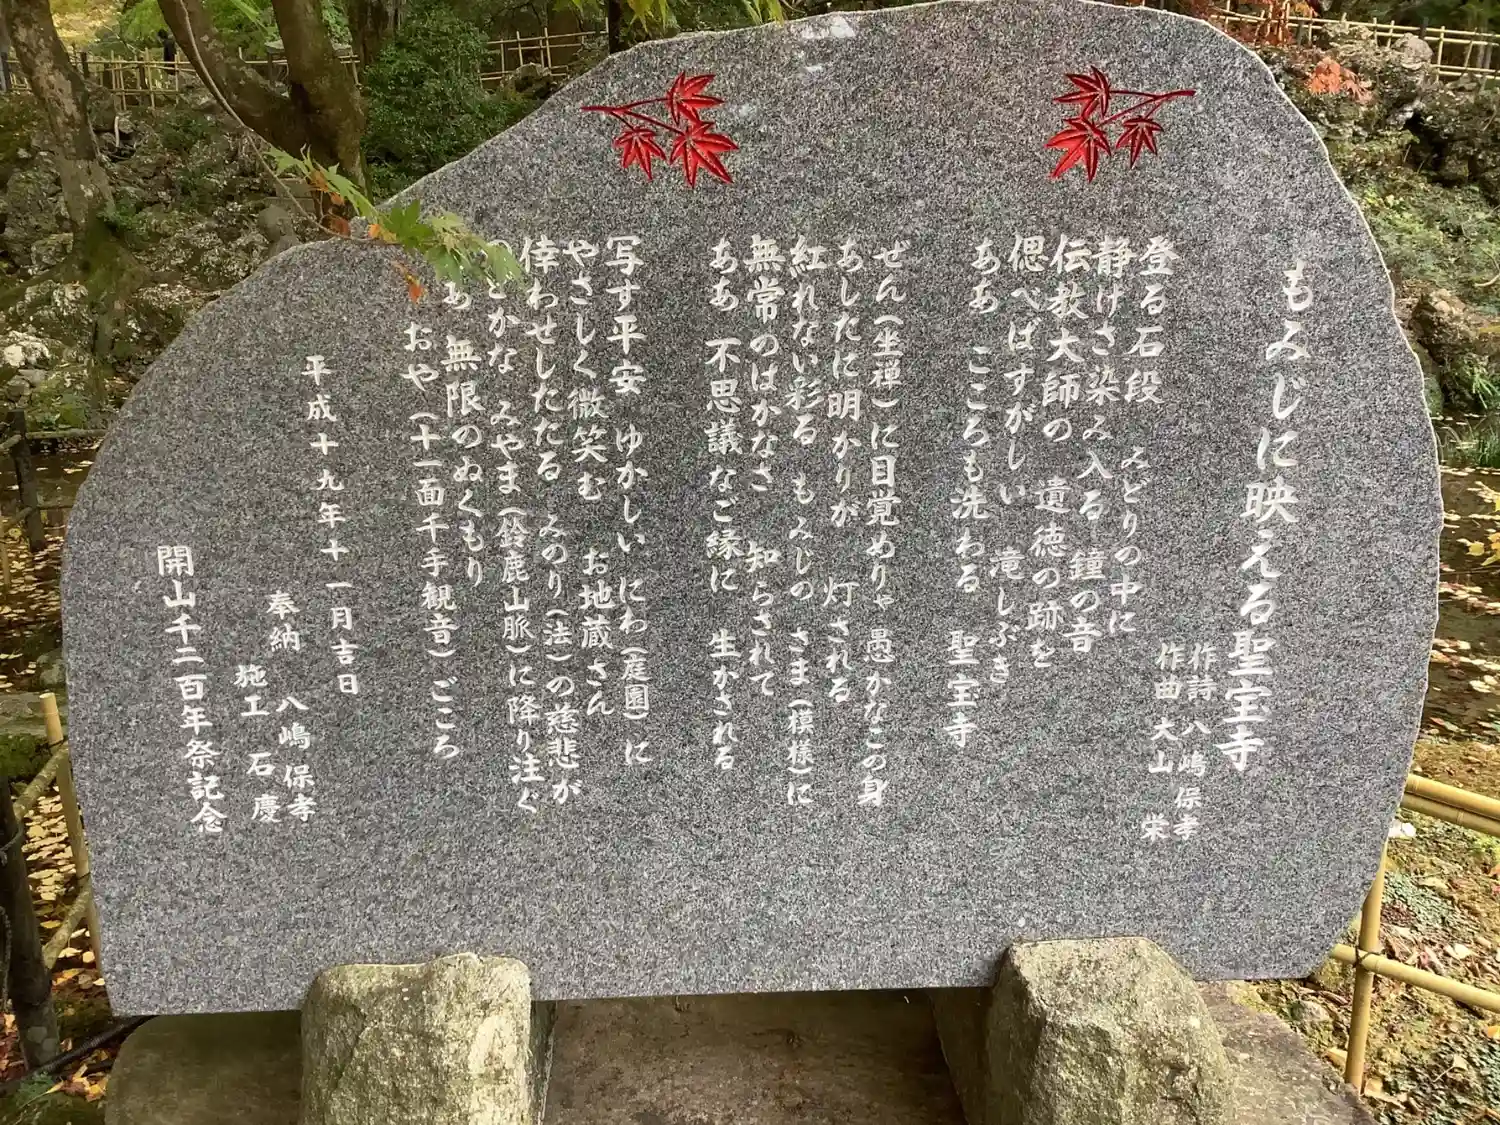 もみじに映える聖宝寺
作詩 八嶋保孝
作曲 大山 栄
登る石段 みどりの中に
静けさ染み入る 鐘の音
伝教大師の 遺徳の跡を
偲べばすがしい 滝しぶき
ああ こころも洗わる 聖宝寺
ぜん(坐禅)に目覚めりゃ愚かなこの身
あしたに明かりが 灯される
紅れない彩る もみじの さま(模様)に
無常のはかなさ 知らされて
ああ 不思議なご縁に 生かされる
写す平安 ゆかしい にわ(庭園)に
やさしく微笑む お地蔵さん
倖わせしたたる みのり(法)の慈悲が
のどかな みやま(鈴鹿山脈)に降り注ぐ
あ 無限のぬくもり
おや(十一面千手観音)ごころ
平成十九年十一月吉日
奉納 八嶋保孝
施工 石慶
開山千二百年祭記念